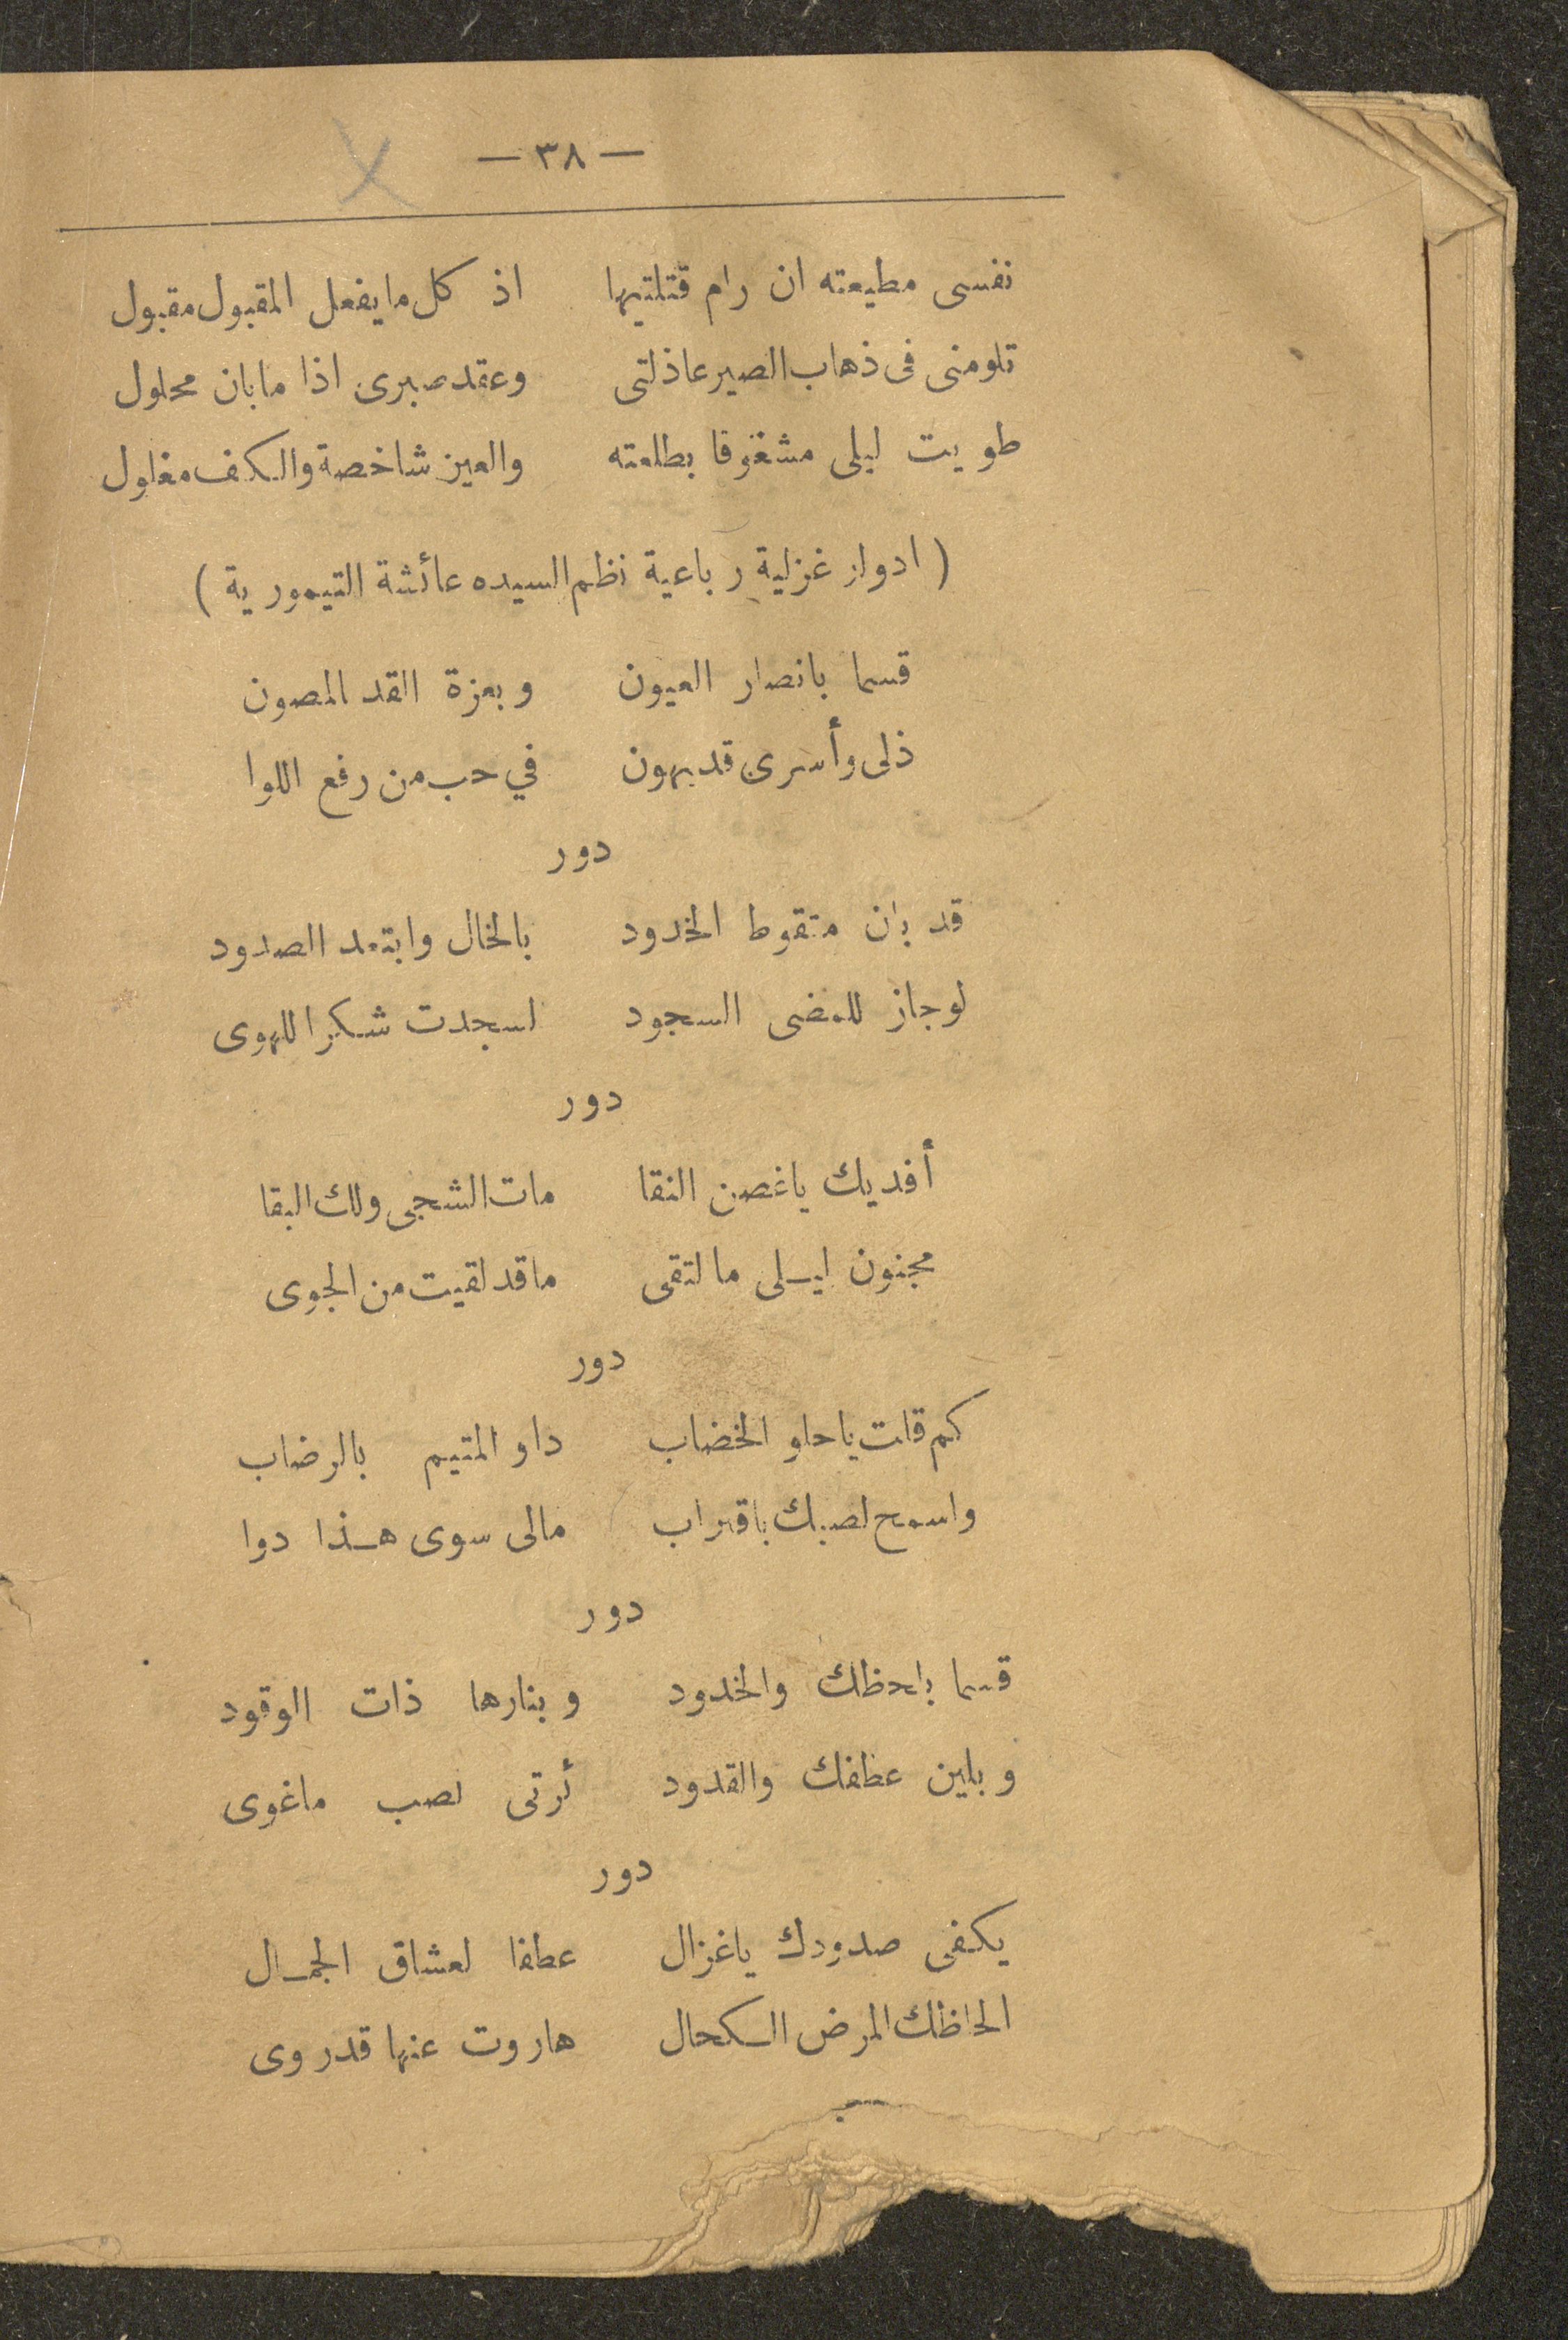 — ٣٨ —
نفسى مطيعته ان رام قتلتيها اذ كل ما يفعل المقبول مقبول
تلومنى فى ذهاب الصبر عاذلتى وعقد صبرى اذا ما بان محلول
طويت ليلى مشغوفا بطلعته والعين شاخصة والكف مغلول
( ادوار غزلية رباعية نظم السيده عائشة التيمورية )
قسما بانصار العيون وبعزة القد المصون
ذلى وأسرى قد يهون في حب من رفع اللوا
دور
قد بان منقوط الخدود بالخال وابتعد الصدود
لو جاز للمضى السجود لسجدت شكرا للهوى
دور
أفديك ياغصن النقا مات الشجى ولك البقا
مجنون ليلى ما لتقى ما قد لقيت من الجوى
دور
كم قلت ياحلو الخضاب داو المتيم بالرضاب
واسمح لصبك باقتراب مالى سوى هذا دوا
دور
قسما بلحظك والخدود وبنارها ذات الوقود
وبلين عطفك والقدود أرتى لصب ماغوى
دور
يكفى صدودك ياغزال عطفا لعشاق الجمال
الحاظك المرض الكحال هاروت عنها قد روى